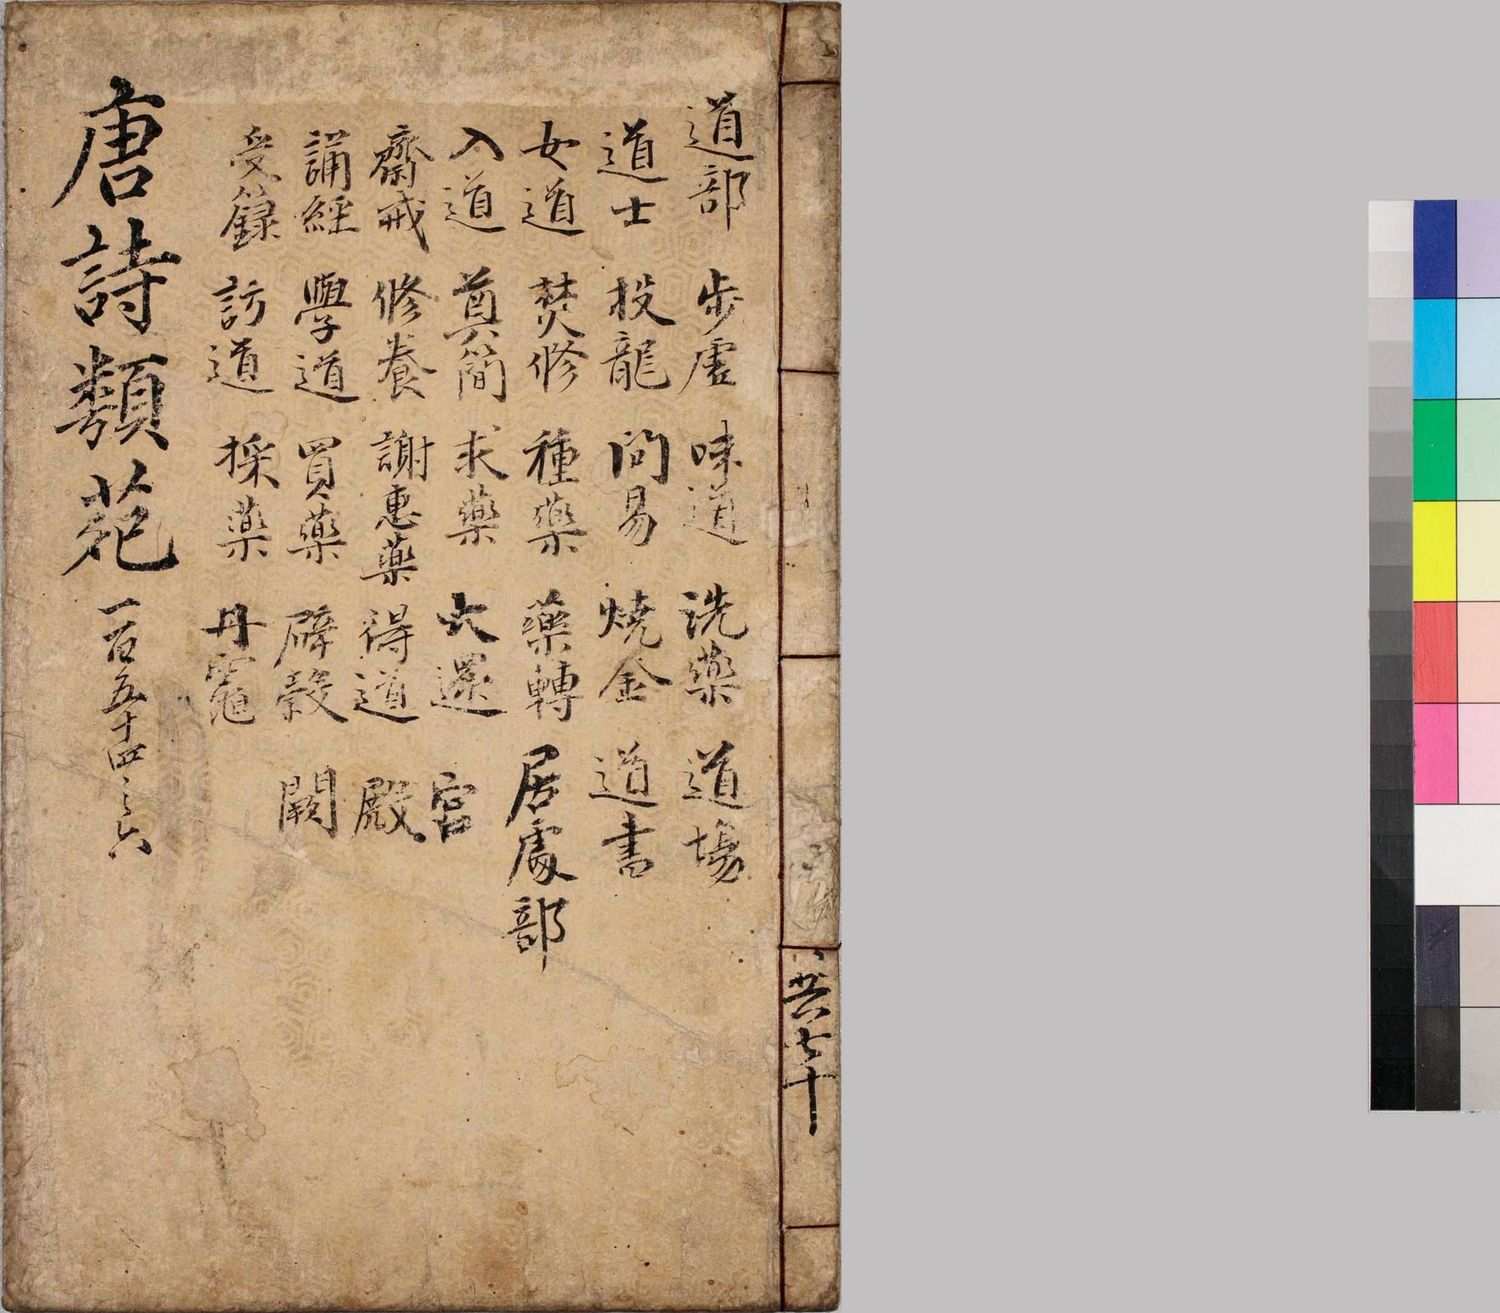 道部 步虛 味道 洗藥 道場
道士 投龍 問易 燒金 道書
女道 焚修 種藥 藥轉 居處部
入道 奠簡 求藥 大還 宮
齋戒 修養 謝惠藥 得道 殿
誦經 學道 買藥 辟穀 闕
受籙 訪道 採藥 丹竈
唐詩類苑 一百五十四之六
共七十